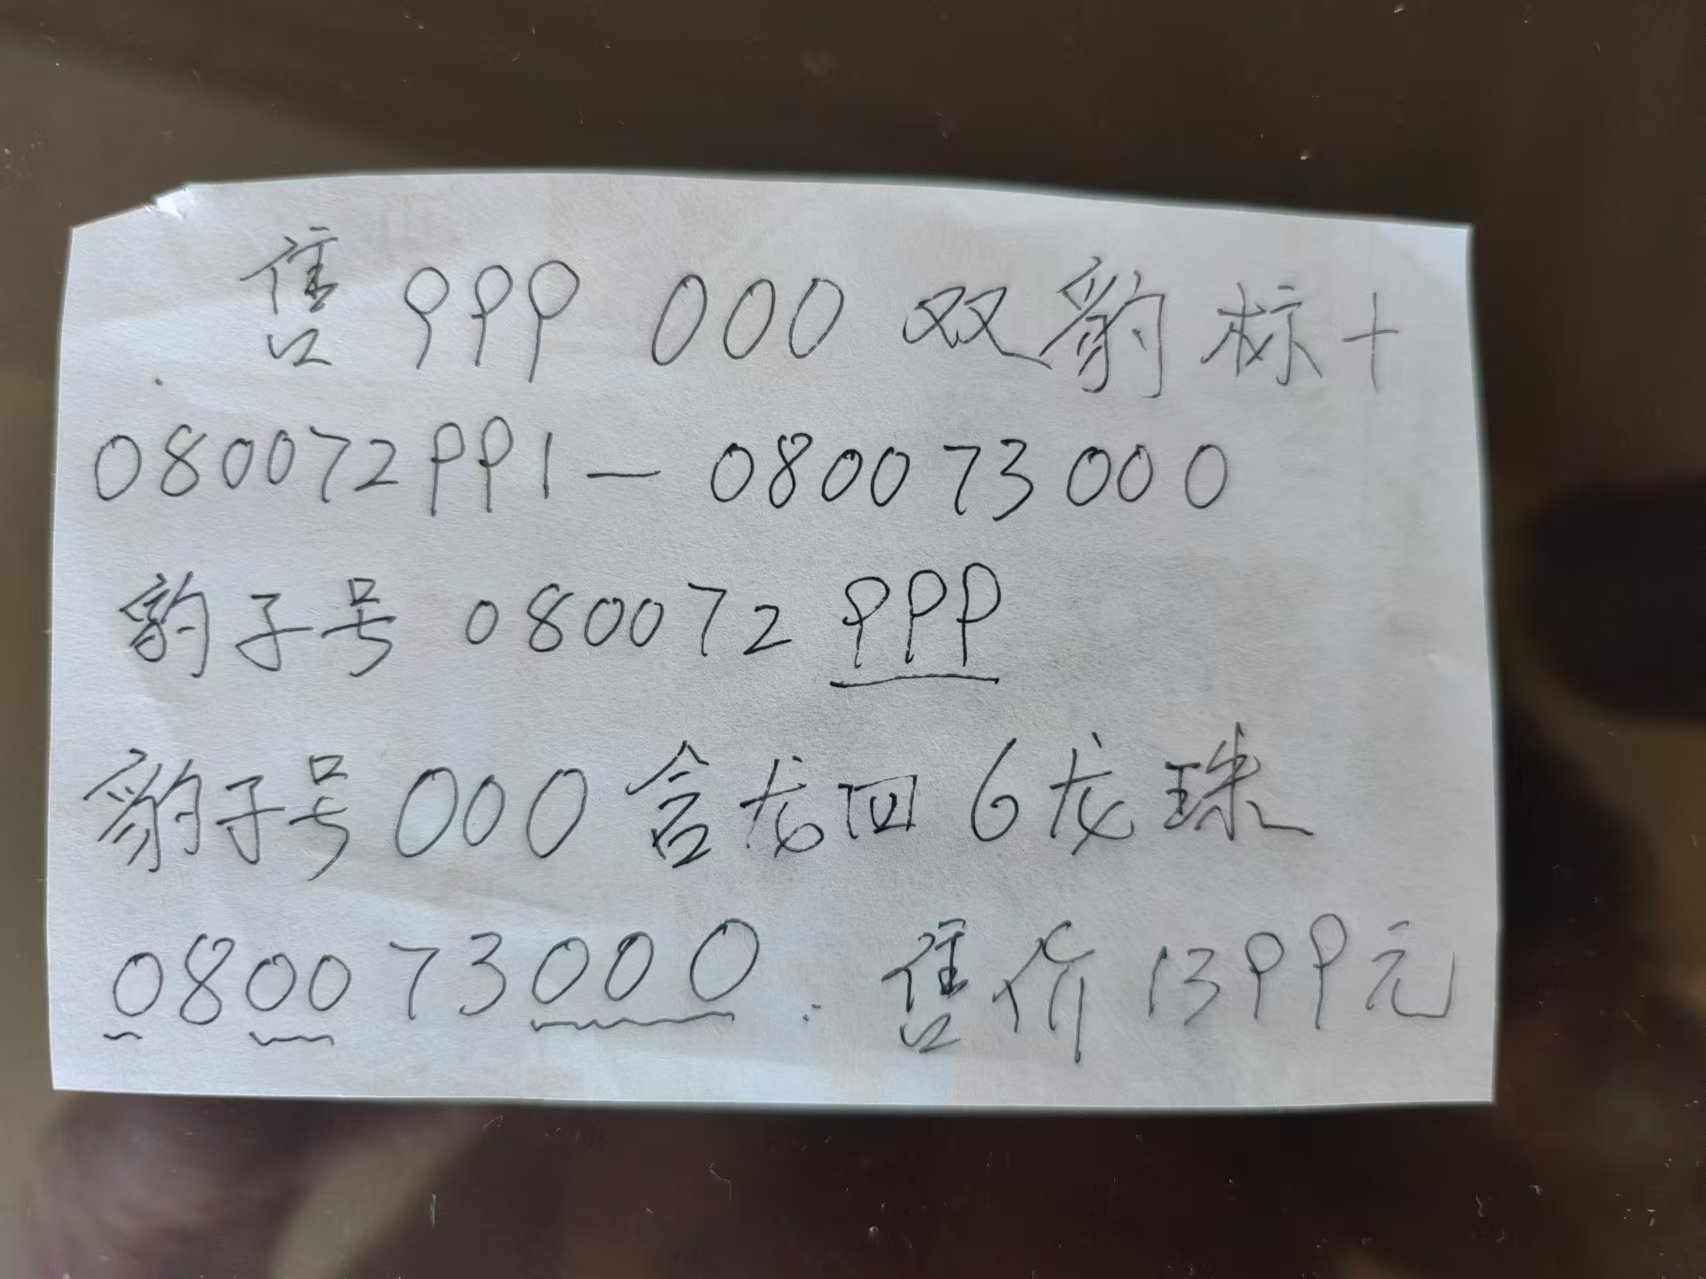 售999 000双豹标十
080072991—080073000
豹子号 080072999
豹子号000含龙凹6龙珠
080073000. 售价1399元